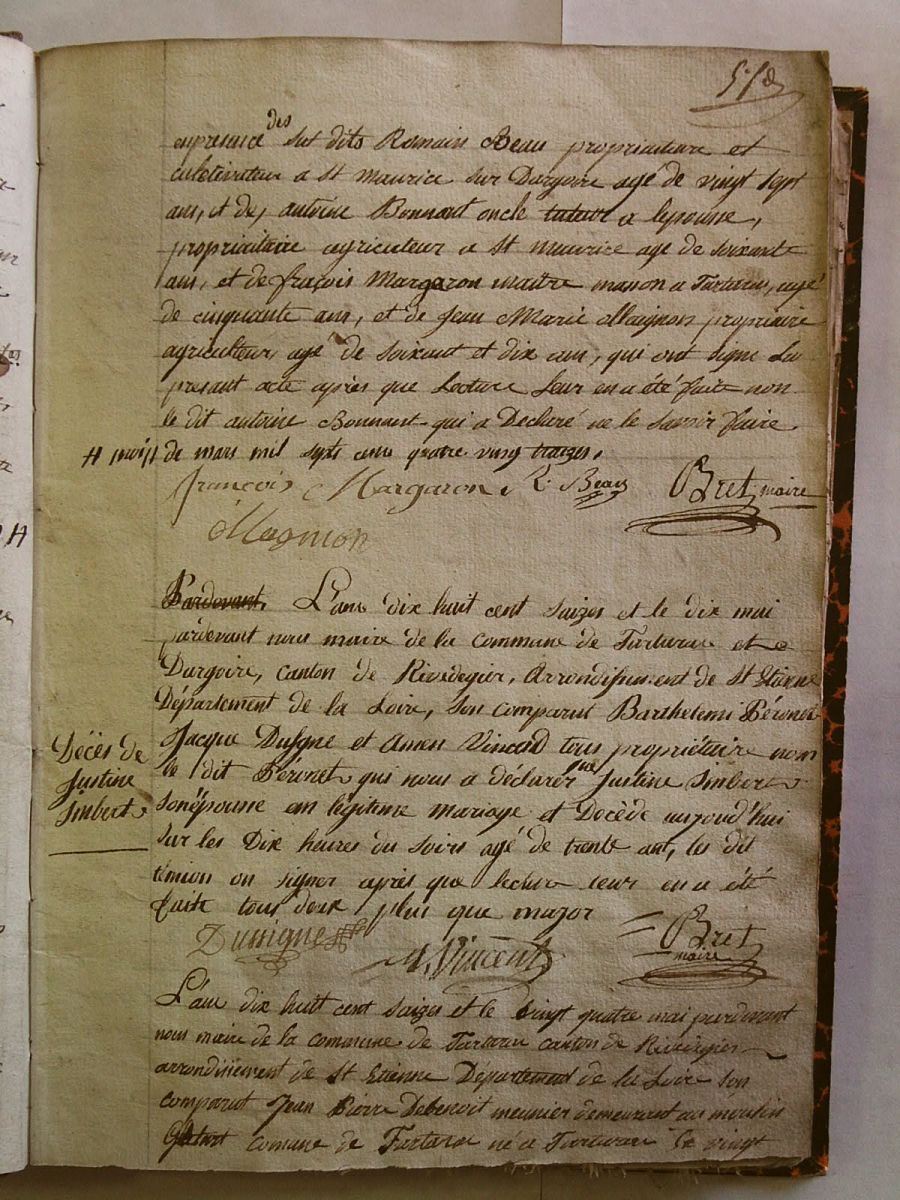 des
en presence sus dits Romain Beau propriaiteire et
cultivateur a St maurice sur Dargoire agé de vingt sept
ans, et de, antoine Bonnart oncle tuteur a lepousse,
propriaitaire agriculteur a St maurice age de soixante
ans, et de françois Margaron maitre masson a Tartaras, agé
de cinquante ans, et de Jean Marie Maignon propriaire
agriculteur agé de soixant et dix ans, qui ont signe Le
presant acte après que Lecture Leur en a été faite non
le dit antoine Bonnart qui a Declaré ne le savoir faire
de mars mil septs cens quatre ving traizes.
françois Margaron R. Beau Bret maire
Magnion
Pardevant, L'ans dix huit cent saizes et le dix mai
pardevant nous maire de la commune de Tartaras et
Dargoire, canton de Rivedegier, Arrondissement de St Etienne
Département de la Loire, son comparut Barthelemi Péronet
Jacque Dusigne et Vincend tous propriétaire non
Décès de
le dit Péronet qui nous a déclarér que Justine Imbert
Justine
son épousse em légitime mariage et Decède aujourd'hui
Imbert
sur les Dix heures du soirs agé de trente ans, les dit
témion on signer après que lecture leur en a été
faite tous deux plus que major
Dusigne A. Vincent Bret
maire
L'ans dix huit cent saizes et le vingt quatre mai pardevant
nous maire de la commune de Tartaras canton de Rivedegier
arrondissement de St Etienne Département de la Loire son
comparut Jean Pierre Debenoit meunier demeurant au moulin
comune de Tartaras né a Tartaras le vingt